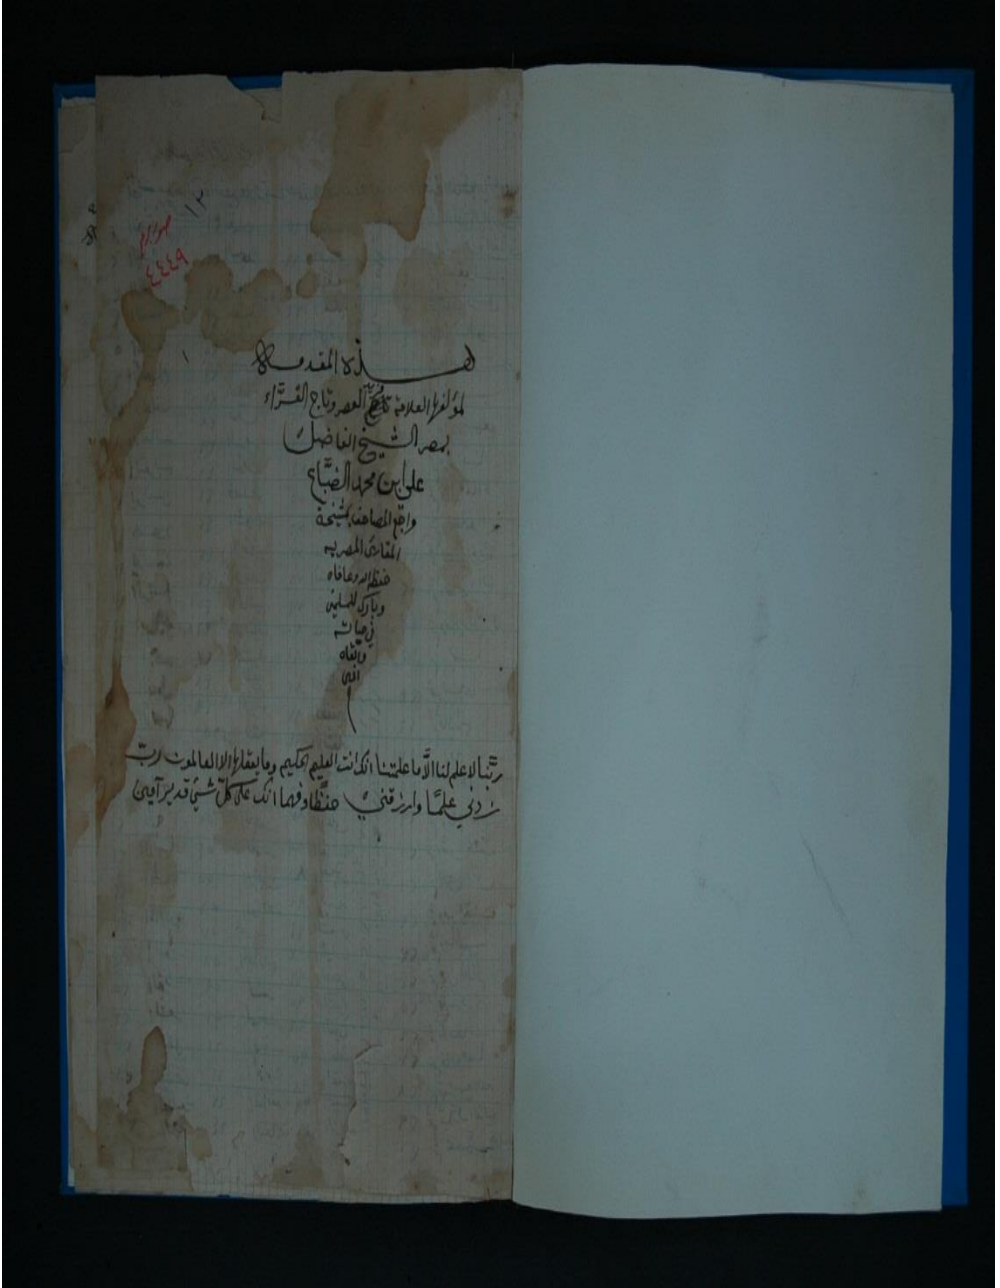 ١٢
٤٤٤٩
١
هذه المقدمة
لمؤلفها العلامة العصر وتاج القرّاء
بمصر الشيخ الفاضل
على ابن محمد الضبَّاع
مراجع المصاحف بمشيخة
المقارئ المصريه
حفظه الله وعافاه
وبارك للمسلمين
في حياته
وابقاه
امين
ربَّنا لا علم لنا الاَّ ما علمتنا انك انت العليم الحكيم وما يعقلها الا العالمون ربّ
زدني علمًا وارزقني حفظًا وفهما انك على كلّ شيئ قدير آمين